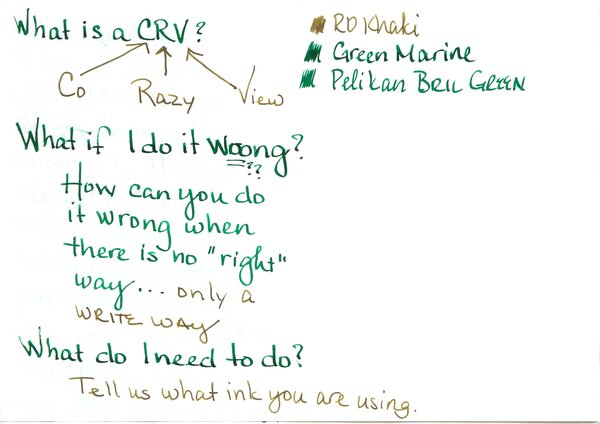 What is a CRV?
Co Razy View
RO Khaki
Green Marine
Pelikan Bril Green
What if I do it Woong?
??
How can you do
it wrong when
there is no "right"
way... only a
WRITE WAY
What do I need to do?
Tell us what ink you are using.